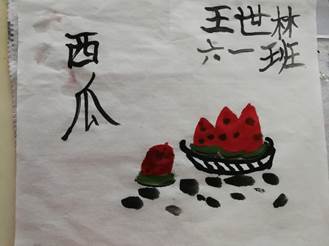 王世林
六一班
西瓜